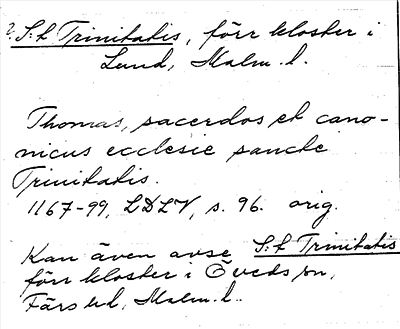 ? S:t Trinitatis, förr kloster i
Lund, Malm. l.
Thomas, sacerdos et cano-
nicus ecclesie sancte
Trinitatis.
1167-99, LDLV, s. 96. orig.
Kan även avse S:t Trinitatis
förr kloster i Öveds sn,
Färs hd, Malm. l.